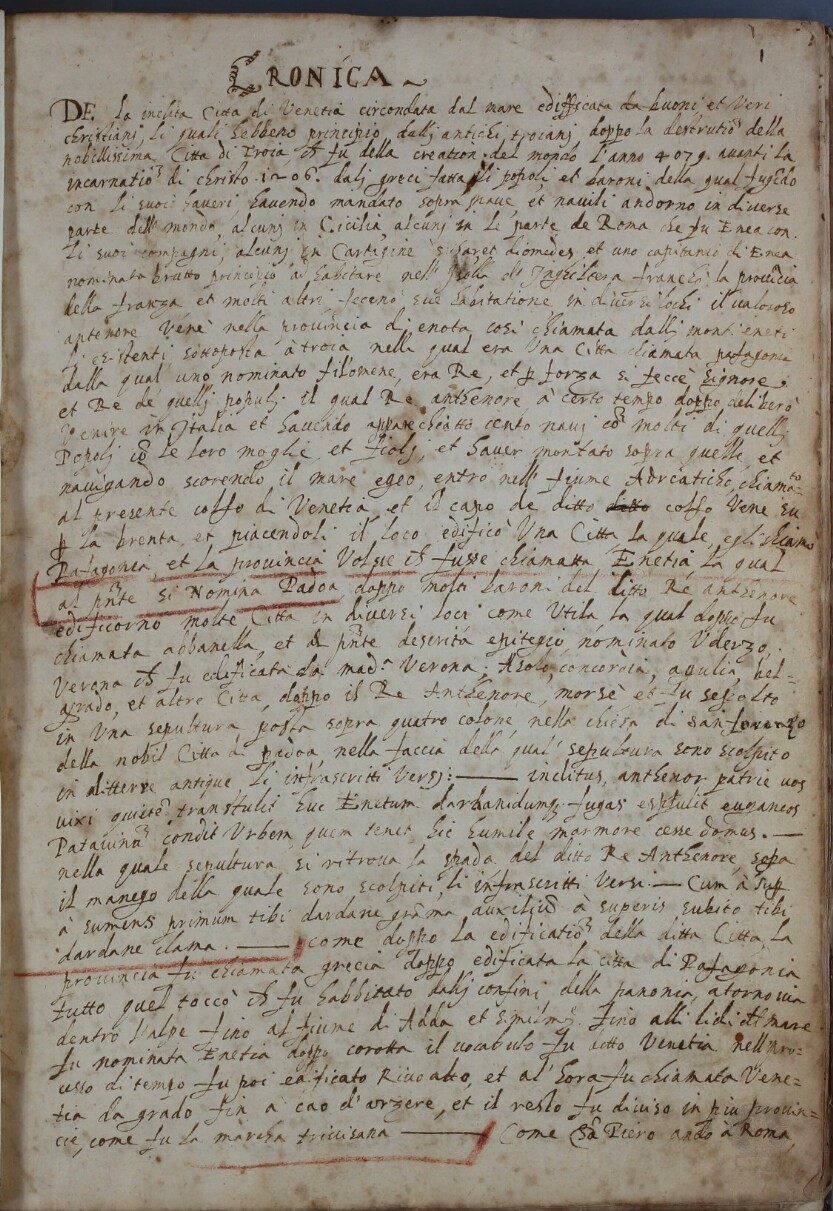 1
CRONICA
DE la inclita Citta di Venetia circondata dal mare edifficata da buoni et Veri
christianj, li quali hebbeno principio dallj antichi troianj doppo la destrutiõ della
nobellissima Citta di Troia, ch fu della creation del mondo l'anno 4079. auanti la
incarnatiõ di christo 1206. dalj greci fatta li popoli et baroni della qual fugēdo
con li suoi haueri hauendo mandato sopra naue et nauili andorno in diuerse
parte dell mondo, alcunj in Cicilia, alcunj in le parte de Roma che fu Enea con
li suoi compagni, alcunj in Cartagine diomedes et uno capitanio di Enea
nominato brutto principiò à habitare nell' Isolla d' Inghiltera franchi la prouincia
della franza et molti altri feceno sue habitatione in diuersi lochi il valoroso
antenore Vene nella prouincia di enota così chiamata dallj mont' eneti
existenti sottoposta à troia nella qual era Una Citta chiamata patagonia
dalla qual uno nominato filomene, era Re, et p forza si feccè signore
et Re de quellj populj il qual Re anthenore à certo tempo doppo deliberò
Venire in Italia et hauendo apparechiatto cento nauj cõ molti di quellj
Popolj cõ le loro moglie et fiolj, et hauer montato sopra quelle, et
nauigando scorendo il mare egeo, entrò nell' fiume Adreatico, chiamato
al presente colfo di Venetia, et il capo de ditto ditto colfo Vene su
p la brenta, et piacendoli il loco edificò Una Citta la quale, egli chiamò
Patagonia, et la prouincia Volse ch fusse chiamatta Enetia la qual
al pnte si Nomina Padoa, doppo molti baroni del ditto Re anthenore
edificorno molte Citta in diuersi loci come Utila, la qual doppo fu
chiamata abbanella, et pnte descrita epitegio, nominato Uderzo,
Verona ch fu edificata da mad Verona; Asolo, concordia, aquilia, bel=
grado, et altre Citta, doppo il Re Anthenore, morse et fu sepolto
in Una sepultura posta sopra quatro colone nella chiesa di san Lorenzo
della nobil Citta di padoa nella faccia della qual sepultura sono scolpito
in littere antique li infrascritti Versj: —— inclitus, anthenor patrie uos
uixi quiete transtulit huc Enetum dardanidumq; fugas expulit euganeos
Patauinã condit Urbem, quem tenet hic humile marmore cese domus. —
nella quale sepultura si ritroua la spada del ditto Re Anthenore, sopa
il manego della quale sono scolpiti li infrascritti Versi — Cum à sup
à sumens primum tibi dardane grãma auxiliũ à superis subito tibi
dardane clama. —— come doppo la edificatiõ della ditta Citta, la
prouincia fu chiamata grecia doppo edificata la citta di Patagonia
tutto quel toccò ch fu habbitato dalj confini della panonia, atorno uia
dentro l'alpe fino al fiume di Adda et fino alli lidi al mare
fu nominata Enetia doppo corotta il uocabulo fu ditto Venetia nell' pro=
cesso di tempo fu poi edificato Riuo alto, et al' hora fu chiamata Vene=
tia da grado fin a cao d'arzere, et il resto fu diuiso in piu prouin=
cie, come fu la marcha triuisana —— Come Sã Piero andò à Roma,